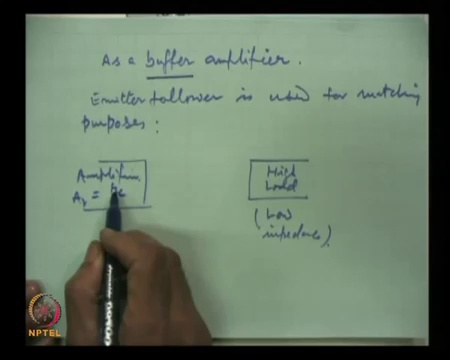 As a buffer amplifier.
Emitter follower is used for matching
purposes :
Amplifier
High
Load
(Low
impedance).
NPTEL